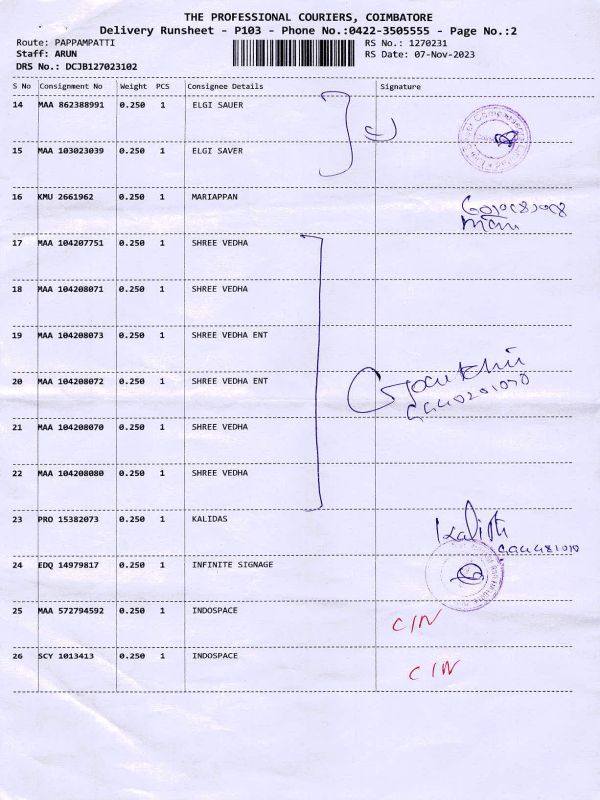 THE PROFESSIONAL COURIERS, COIMBATORE
Delivery Runsheet - P103 - Phone No.:0422-3505555 - Page No.:2
Route: PAPPAMPATTI RS No.: 1270231
Staff: ARUN RS Date: 07-Nov-2023
DRS No.: DCJB127023102
S No Consignment No Weight PCS Consignee Details Signature
14 MAA 862388991 0.250 1 ELGI SAUER
15 MAA 103023039 0.250 1 ELGI SAVER
16 KMU 2661962 0.250 1 MARIAPPAN
17 MAA 104207751 0.250 1 SHREE VEDHA
18 MAA 104208071 0.250 1 SHREE VEDHA
19 MAA 104208073 0.250 1 SHREE VEDHA ENT
20 MAA 104208072 0.250 1 SHREE VEDHA ENT
21 MAA 104208070 0.250 1 SHREE VEDHA
22 MAA 104208080 0.250 1 SHREE VEDHA
23 PRO 15382073 0.250 1 KALIDAS
24 EDQ 14979817 0.250 1 INFINITE SIGNAGE
25 MAA 572794592 0.250 1 INDOSPACE C/N
26 SCY 1013413 0.250 1 INDOSPACE C/N